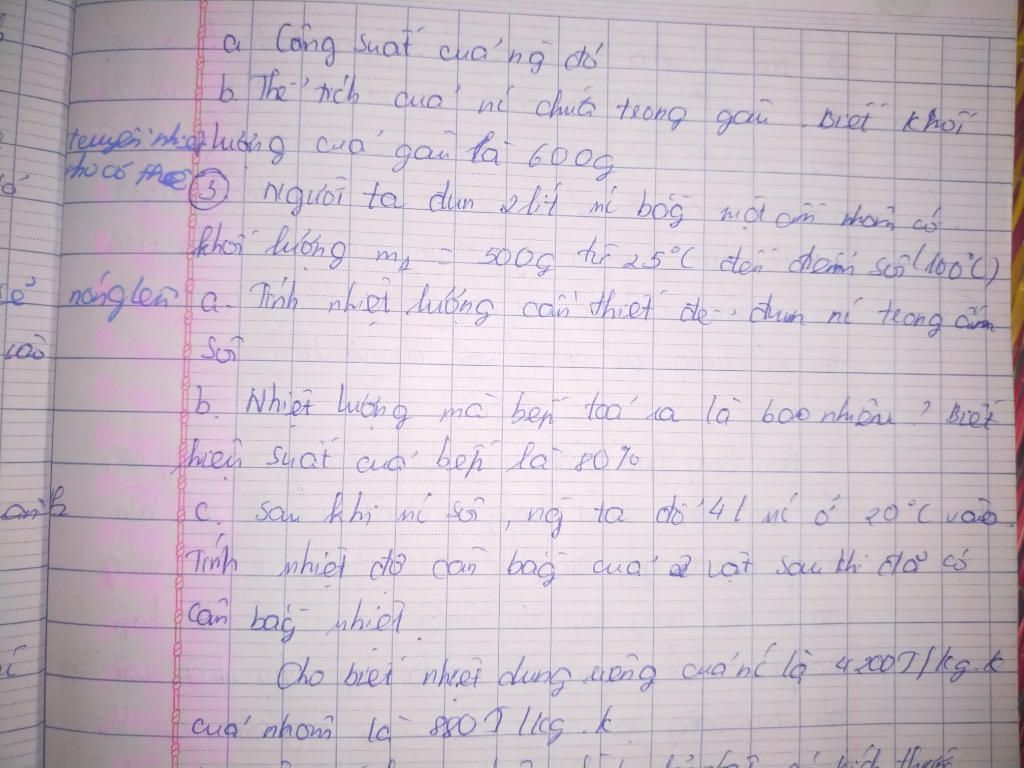 a Công suất của ng đó
b Thể tích của nc chứa trong gầu. Biết khối
truyền nhiệt lượng của gầu là 600g
cho cả
③ Người ta đun 2 lít nc bằg một ấm nhôm có
khối lượng m₂ = 500g từ 25°C đến điểm sôi (100°C)
nóng lên a. Tính nhiệt lượng cần thiết để đun nc trong ấm
vào sôi
b. Nhiệt lượng mà bếp toả ra là bao nhiêu? Biết
hiệu suất của bếp là 80%
c. Sau khi nc sôi, ng ta đổ 4l nc ở 20°C vào.
Tính nhiệt độ cân bằg của 2 vật sau khi đã có
cân bằg nhiệt.
Cho biết nhiệt dung riêng của nc là 4200J/kg.k
của nhôm là 880J/kg.k